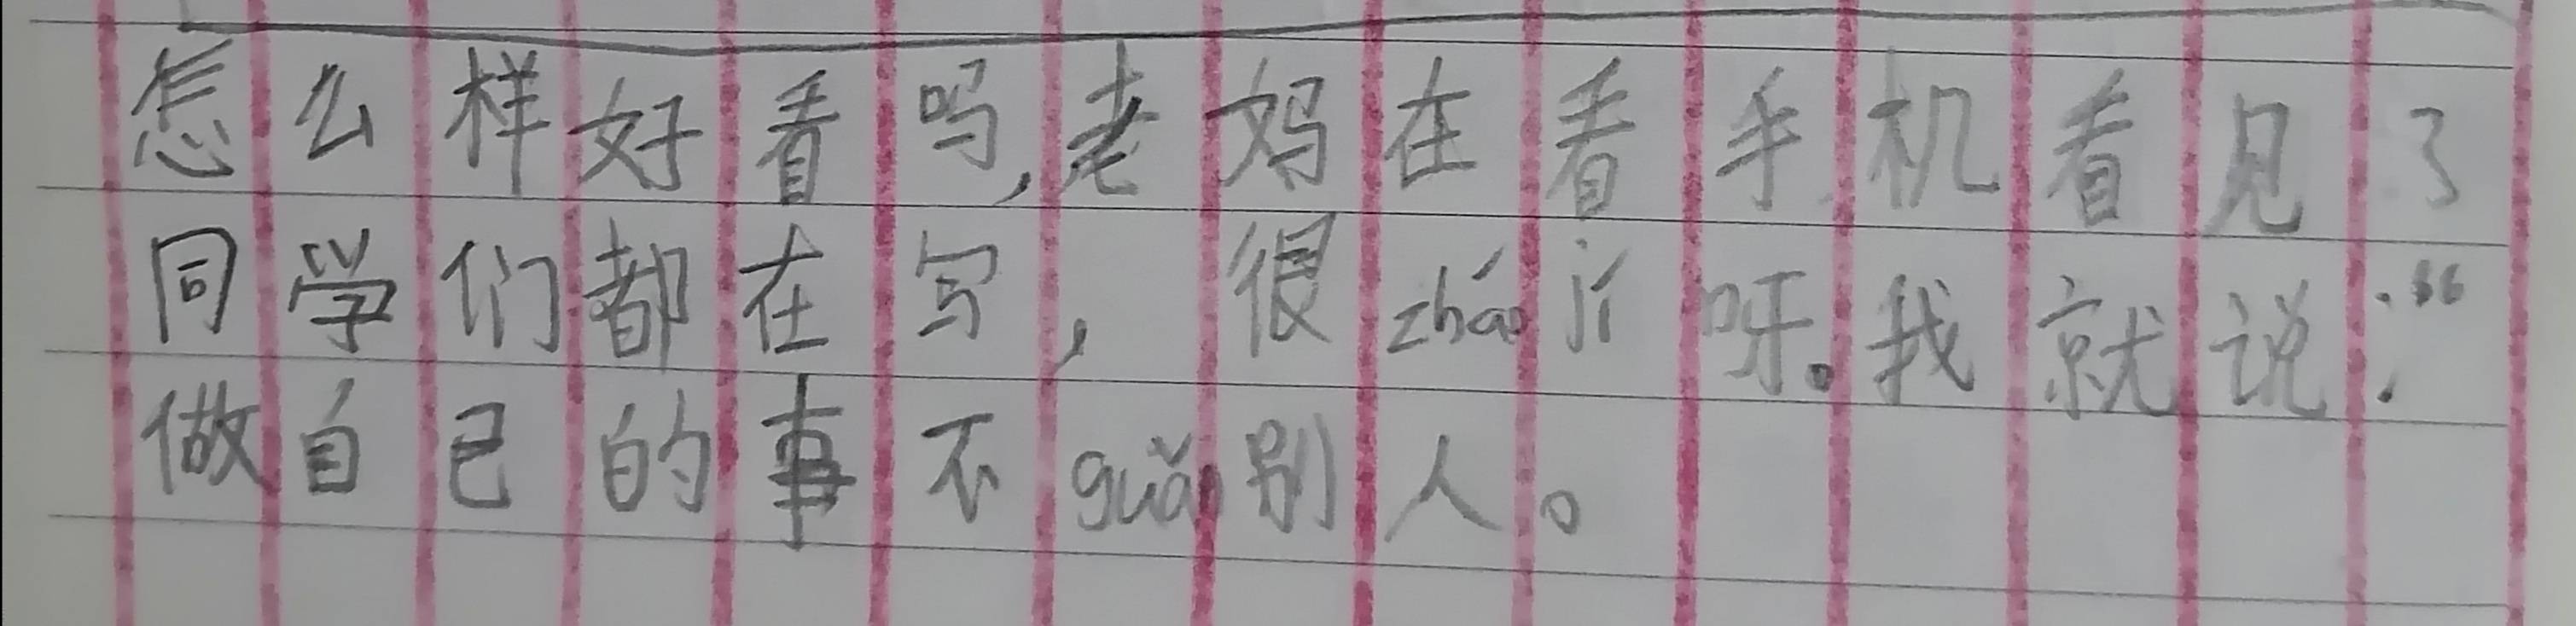 怎么样好看吗,老妈在看手机看见了
同学们都在写, 很zháo jí 呀。我就说:“
做自己的事不guǎn别人。